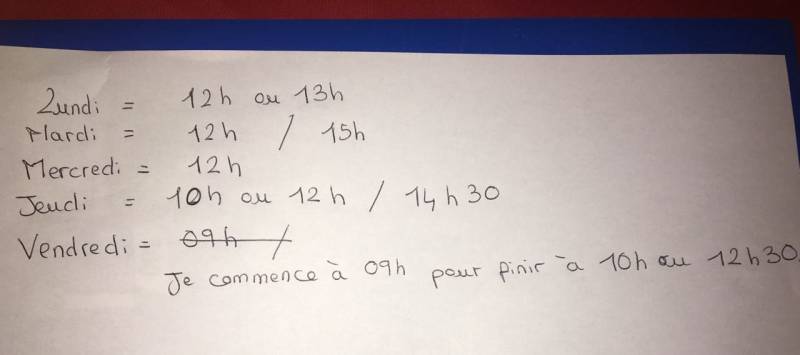 Lundi = 12h ou 13h
Mardi = 12h / 15h
Mercredi = 12h
Jeudi = 10h ou 12h / 14h30
Vendredi = 09h /
Je commence à 09h pour finir à 10h ou 12h30.